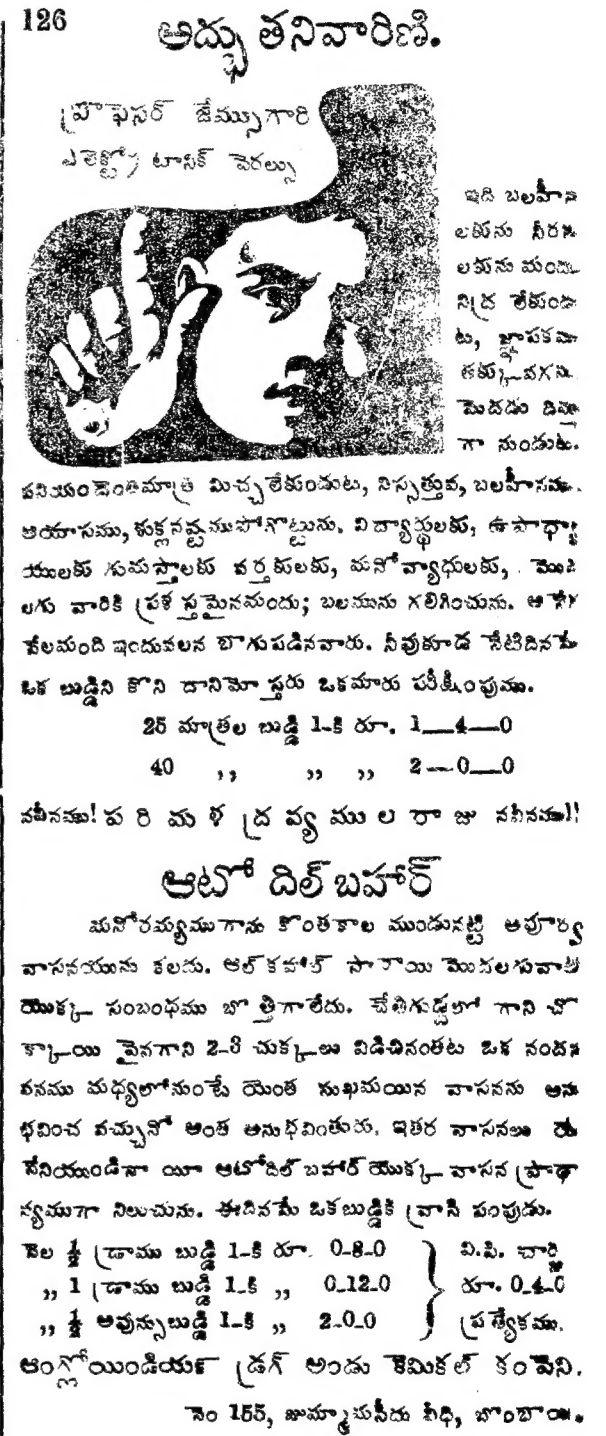 126
అద్భుతనివారిణి.
ప్రొఫెసర్ జేమ్సుగారి
ఎలెక్ట్రో టానిక్ పెరల్సు
ఇది బలహీన
లకును నీరస
లకును మంది.
నిద్ర లేకుండు
ట, జ్ఞాపకము
తక్కువగను
మెదడు దిమ్మ
గా నుండుట.
పనియందెంతమాత్ర మిచ్చలేకుండుట, నిస్సత్తువ, బలహీనము.
ఆయాసము, శుక్లనష్టముపోగొట్టును. విద్యార్థులకు, ఉపాధ్యా
యులకు గుమస్తాలకు వర్తకులకు, మనోవ్యాధులకు, మొద
లగు వారికి ప్రశస్తమైనమందు; బలమును గలిగించును. అనేక
వేలమంది ఇందువలన బాగుపడినవారు. నీవుకూడ నేటిదినమే
ఒక బుడ్డిని కొని దానిమోస్తరు ఒకమారు పరీక్షింపుము.
25 మాత్రల బుడ్డి 1-కి రూ. 1—4—0
40 ,, ,, ,, 2—0—0
నవీనము! ప రి మ ళ ద్ర వ్య ము ల రా జు నవీనము!!
ఆటో దిల్ బహార్
మనోరమ్యముగాను కొంతకాల ముండునట్టి అపూర్వ
వాసనయును కలదు. ఆల్ కహాల్ సారాయి మొదలగువాటి
యొక్క సంబంధము బొత్తిగాలేదు. చేతిగుడ్డలో గాని చొ
క్కాయి పైనగాని 2-3 చుక్కలు విడిచినంతట ఒక నందన
వనము మధ్యలోనుంటే యెంత సుఖమయిన వాసనను అను
భవించ వచ్చునో అంత అనుభవింతురు. ఇతర వాసనలు యే
వేనియుండినా యీ ఆటోదిల్ బహార్ యొక్క వాసన ప్రాధా
న్యముగా నిలుచును. ఈదినమే ఒకబుడ్డికి వ్రాసి పంపుడు.
వెల ½ డ్రాము బుడ్డి 1-కి రూ. 0-8-0 వి.పి. చార్జి
,, 1 డ్రాము బుడ్డి 1-కి ,, 0-12-0 రూ. 0-4-0
,, ½ అవున్సుబుడ్డి 1-కి ,, 2-0-0 ప్రత్యేకము.
ఆంగ్లోయిండియన్ డ్రగ్ అండు కెమికల్ కంపెని.
నెం 155, జుమ్మామసీదు వీధి, బొంబాయి.